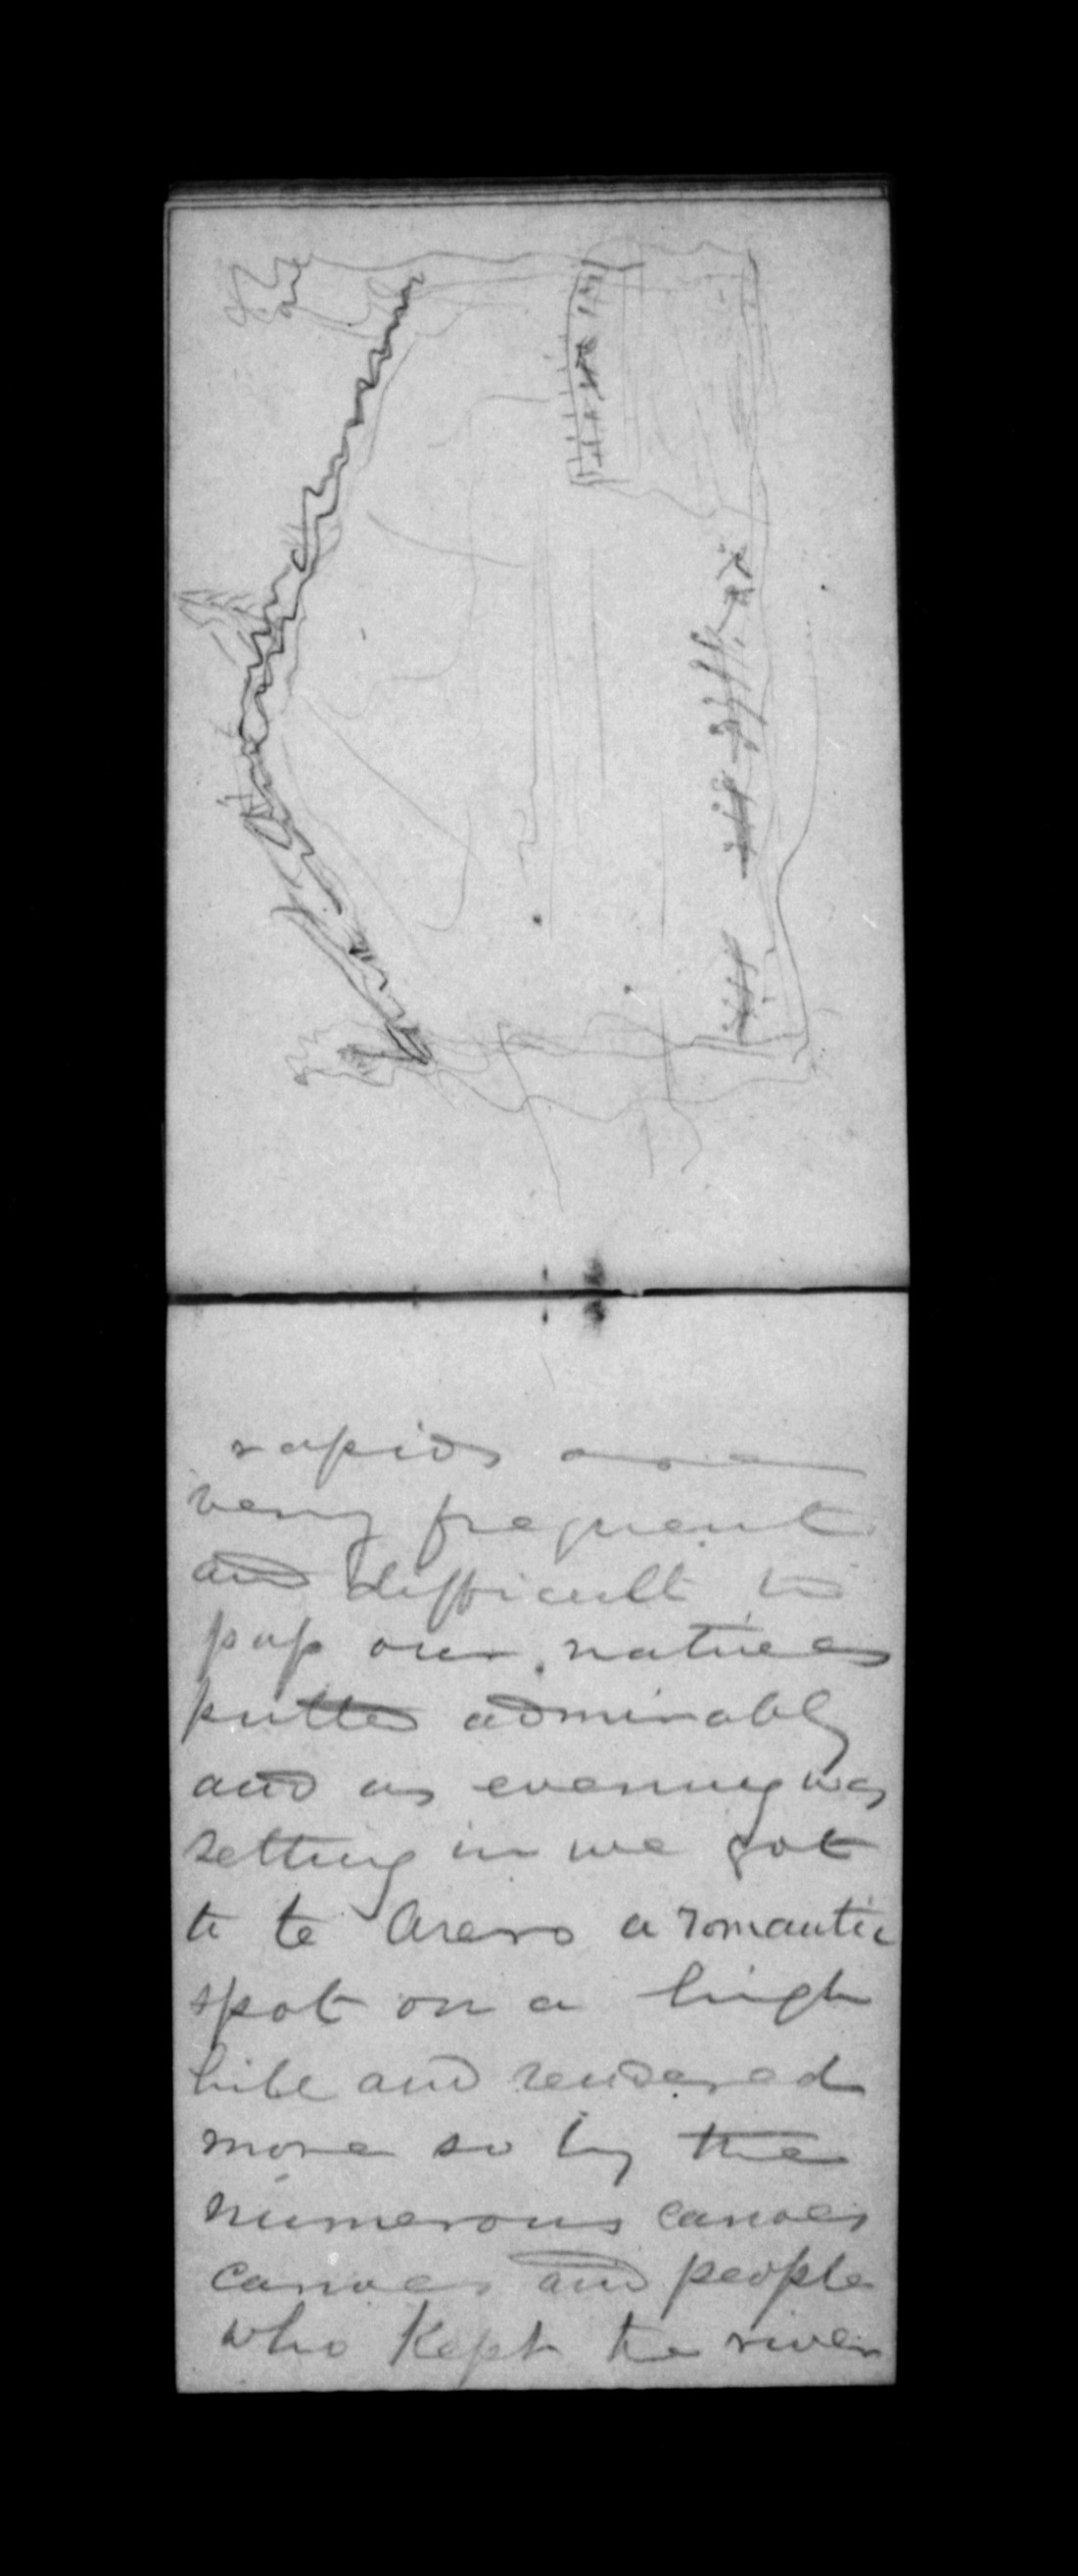 rapids are
very frequent
and difficult to
pass our natives
pulled admirably
and as evening was
setting in we got
to te Arero a romantic
spot on a high
hill and rendered
more so by the
numerous canoes
canoes and people
who Kept the river